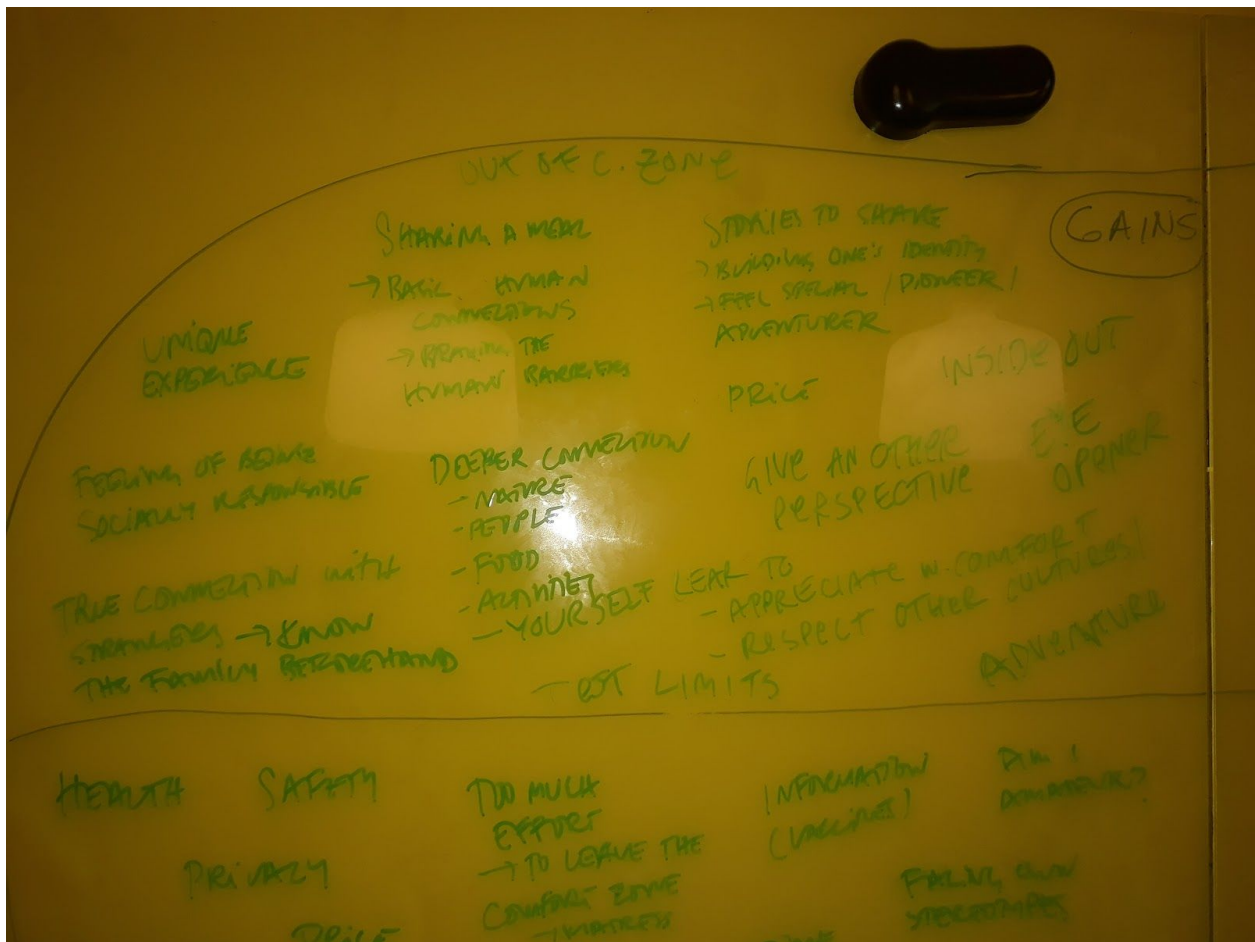 OUT OF C. ZONE
GAINS
SHARING A MEAL
→ BASIC HUMAN
CONNECTIONS
→ BREAKING THE
HUMAN BARRIERS
STORIES TO SHARE
→ BUILDING ONE'S IDENTITY
→ FEEL SPECIAL / PIONEER /
ADVENTURER
UNIQUE
EXPERIENCE
PRICE
INSIDE OUT
FEELING OF BEING
SOCIALLY RESPONSIBLE
DEEPER CONNECTION
- NATURE
- PEOPLE
- FOOD
- YOURSELF
GIVE AN OTHER
PERSPECTIVE
EYE
OPENER
TRUE CONNECTION WITH
STRANGERS → KNOW
THE FAMILY BEFOREHAND
LEAR TO
- APPRECIATE W. COMFORT
- RESPECT OTHER CULTURES!
EST LIMITS
ADVENTURE
HEALTH
SAFETY
PRIVACY
PRICE
TOO MUCH
EFFORT
→ TO LEAVE THE
COMFORT ZONE
→ MATRESS
INFORMATION
(VACCINES)
AM I
STEREOTYPES